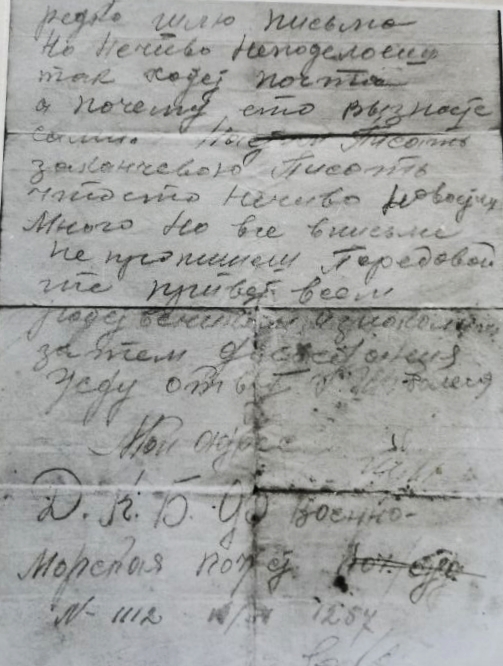 редко шлю письма
но нечево неподелоеш
так ходет почта
а почему ето вызнаете
сами. Писать
заканчеваю Писать
чтото нечево новостей
Много но все вписме
не пропишеш Передовай
те привет всем
родственикам и знакомым
затем досвидания
Жду ответ
Мой адрес
Д. К. Б. Ф Военно-
Морская почта
N- 1112 1287